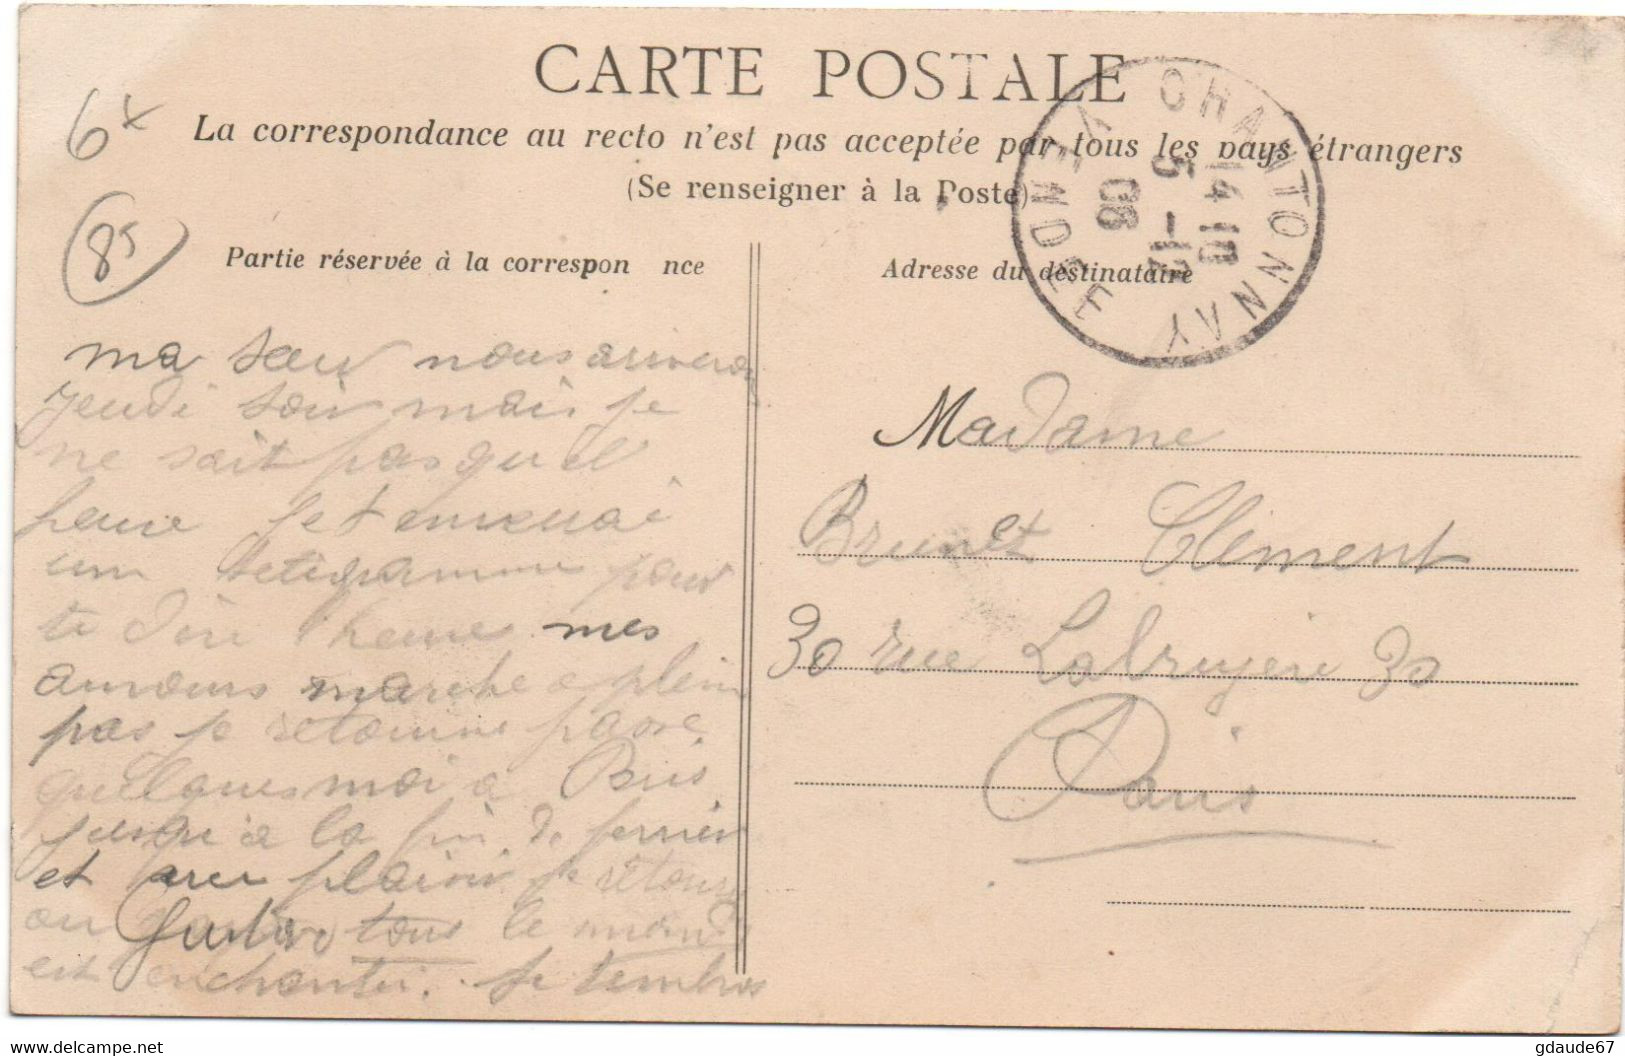 CARTE POSTALE
6x
La correspondance au recto n'est pas acceptée par tous les pays étrangers
(Se renseigner à la Poste)
85
CHANTONNAY
VENDEE
14 10
5 - 12
06
Partie réservée à la correspon nce
Adresse du destinataire
ma sœur nous ariveron
jeudi soir mais je
ne sait pas quel
heure je t enverrai
um pour
te dire l heure mes
amours marche a plein
pas je retourne passe
quelques moi a Paris
jusqu a la fin de fevrier
et avec plaisir je
ou tous le monde
est enchanter. Je
Madame
Brunet Clément
30 rue Labruyere 30
Paris
www.delcampe.net
gdaude67